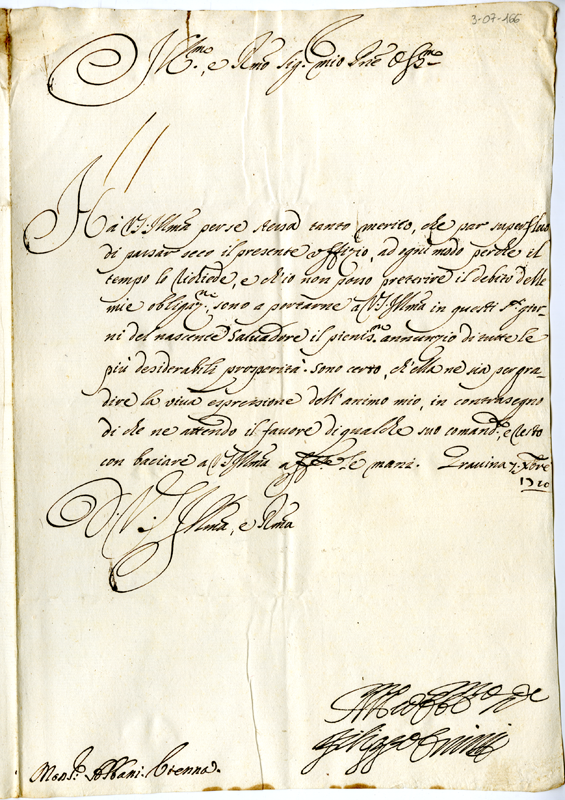 3-07-166
Ill.mo, e R.mo Sig.r mio P.ne Oss.mo
Ha V.S. Ill.ma per se stessa tanto merito, che par superfluo
di passar seco il presente offizio, ad ogni modo perche il
tempo lo richiede, e ch'io non posso preterire il debito delle
mie obligaz.ni, sono a portarne a V.S. Ill.ma in questi S.ti gior-
ni del nascente Salvadore il pieniss.mo annunzio di tutte le
più desiderabili prosperità. Sono certo, ch'ella ne sia per gra-
dire la viva espressione dell'animo mio, in contrasegno
di che ne attendo il favore di qualche suo comando, e resto
con baciare a V.S. Ill.ma le mani. Gravina 7 Xbre
1710
Di V.S. Ill.ma, e R.ma
Filippo
Mons.r Albani. Vienna.